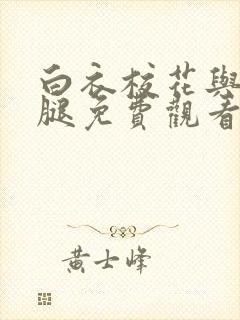 白衣校花與
腿免費觀看
黃士峰